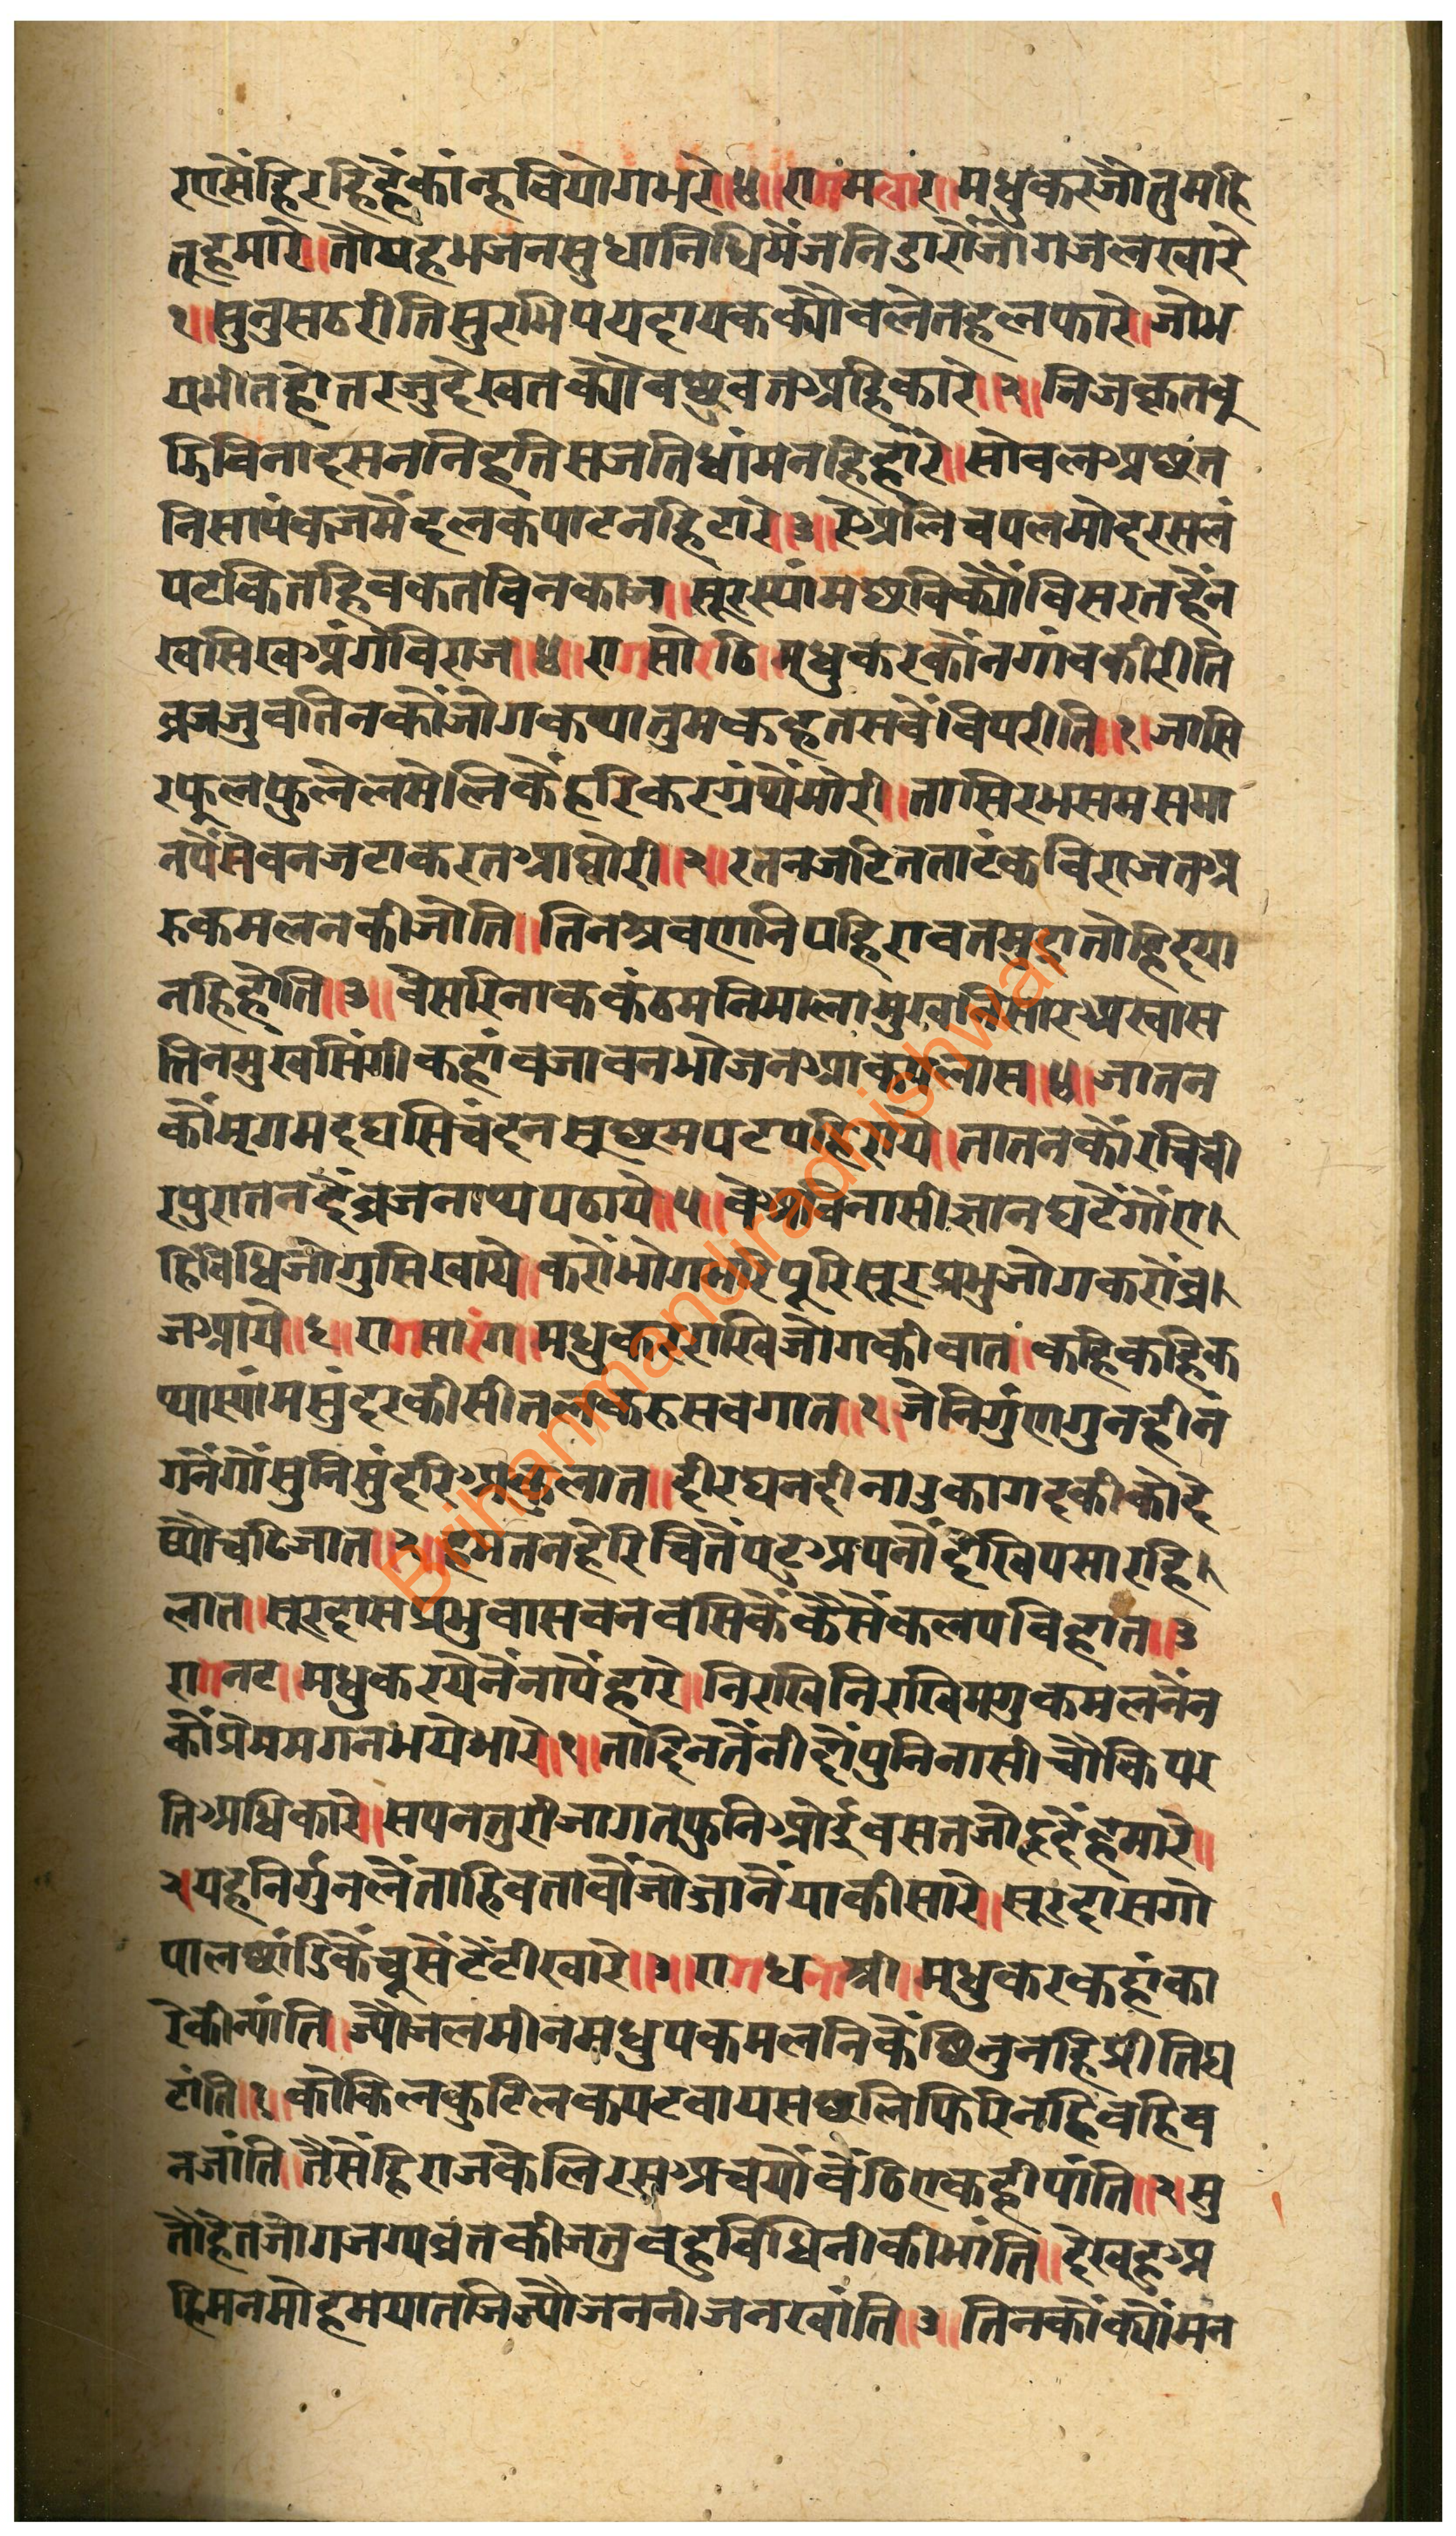 रणसैंहिरहिहैंकांन्हवियोगभरे॥४॥रागमलार॥मधुकरजौतुमहि
तूहमारे॥तौयहभजनसुधानिधिमैंजनिडारौजोगजलखारे
१॥सुनुसठरीतिसुरभिपयदायकक्यौवलेतहलफारे॥जोभ
यभीतहोतरजुदेखतक्यौवछुवतअहिकारे॥२॥निजकृतबू
झिविनादसननिहतिसजतिधांमनहिहारे॥सोवलअछत
निसापंकजमैंदलकपाटनहिटारे॥३॥रेअलिचपलमोदरसलं
पटकितहिवकतविनकाज॥सूरस्यांमछविक्यौंविसरतहैंन
खसिखअंगविराज॥४॥रागसोरठि॥मधुकरकौनगांवकीरीति
व्रजजुवतिनकौंजोगकथातुमकहतसवैंविपरीति॥१॥जासि
रफूलफुलेलमेलिकैंहरिकरग्रंथैंमोरी॥तासिरभसमसमा
नपैंसेवनजटाकरतआघोरी॥२॥रतनजटितताटंकविराजतअ
रुकमलनकीजोति॥तिनश्रवणनिपहिरावतमुद्रातोहिदया
नहिहोति॥३॥वेसरिनाककंठमनिमालामुखनिसारअखास
तिनमुखसिंगीकहांवजावनभोजनआकपलास॥४॥जातन
कौंमृगमदघसिचंदनसूछमपटपहिराये॥तातनकौंरचिची
रपुरातनदैंव्रजनाथपठाये॥५॥वेअविनासीज्ञानघटैंगौंए।
हिविधिजोगुसिखाये॥करौंभोगभरिपूरिसूरप्रभुजोगकरौंव्र।
जआये॥६॥रागसारंग॥मधुकरराखिजोगकीवात॥कहिकहिक
थास्यांमसुंदरकीसीतलकरुसवगात॥१॥जेनिर्गुणगुनहीन
गनैंगौंसुनिसुंदरिअकुलात॥दीरघनदीनाउकागदकीकोदे
ष्यौचढिजात॥२॥हमतनहेरिचितैंपटअपनौंदेखिपसारहि।
लात॥सूरदासप्रभुवासवनवसिकैंकैसैंकलपविहात॥३
रागनट॥मधुकरयेनैंनापैंहारे॥निरखिनिरखिमगुकमलनैंन
कौंप्रेममगनभयेभारे॥१॥तादिनतैंनीदौंपुनिनासीचौकिपर
तिअधिकारे॥सपनतुरीजागतफुनिओईवसतजोह्रदैंहमारे॥
२यहनिर्गुनलैंताहिवतावौंजोजानैंयाकीसारे॥सूरदासगो
पालछांडिकैंचूसैंटैंटीखारे॥३॥रागधनाश्री॥मधुकरकहांका
रेकीन्यांति॥ज्यौजलमीनमधुपकमलनिकैंछिनुनहिप्रीतिघ
टांति॥१॥कोकिलकुटिलकपटवायसछलिफिरिनहिंवहिव
नजांति॥तैसैंहिराजकेलिरसअचयौवैंठिएकहीपांति॥२॥सु
तहितजोगजग्यव्रतकीजतुवहुविधिनीकीभांति॥देखहुअ
हिमनमोहमयातजिज्यौजननीजनखांति॥३॥तिनकौंक्यौंमन